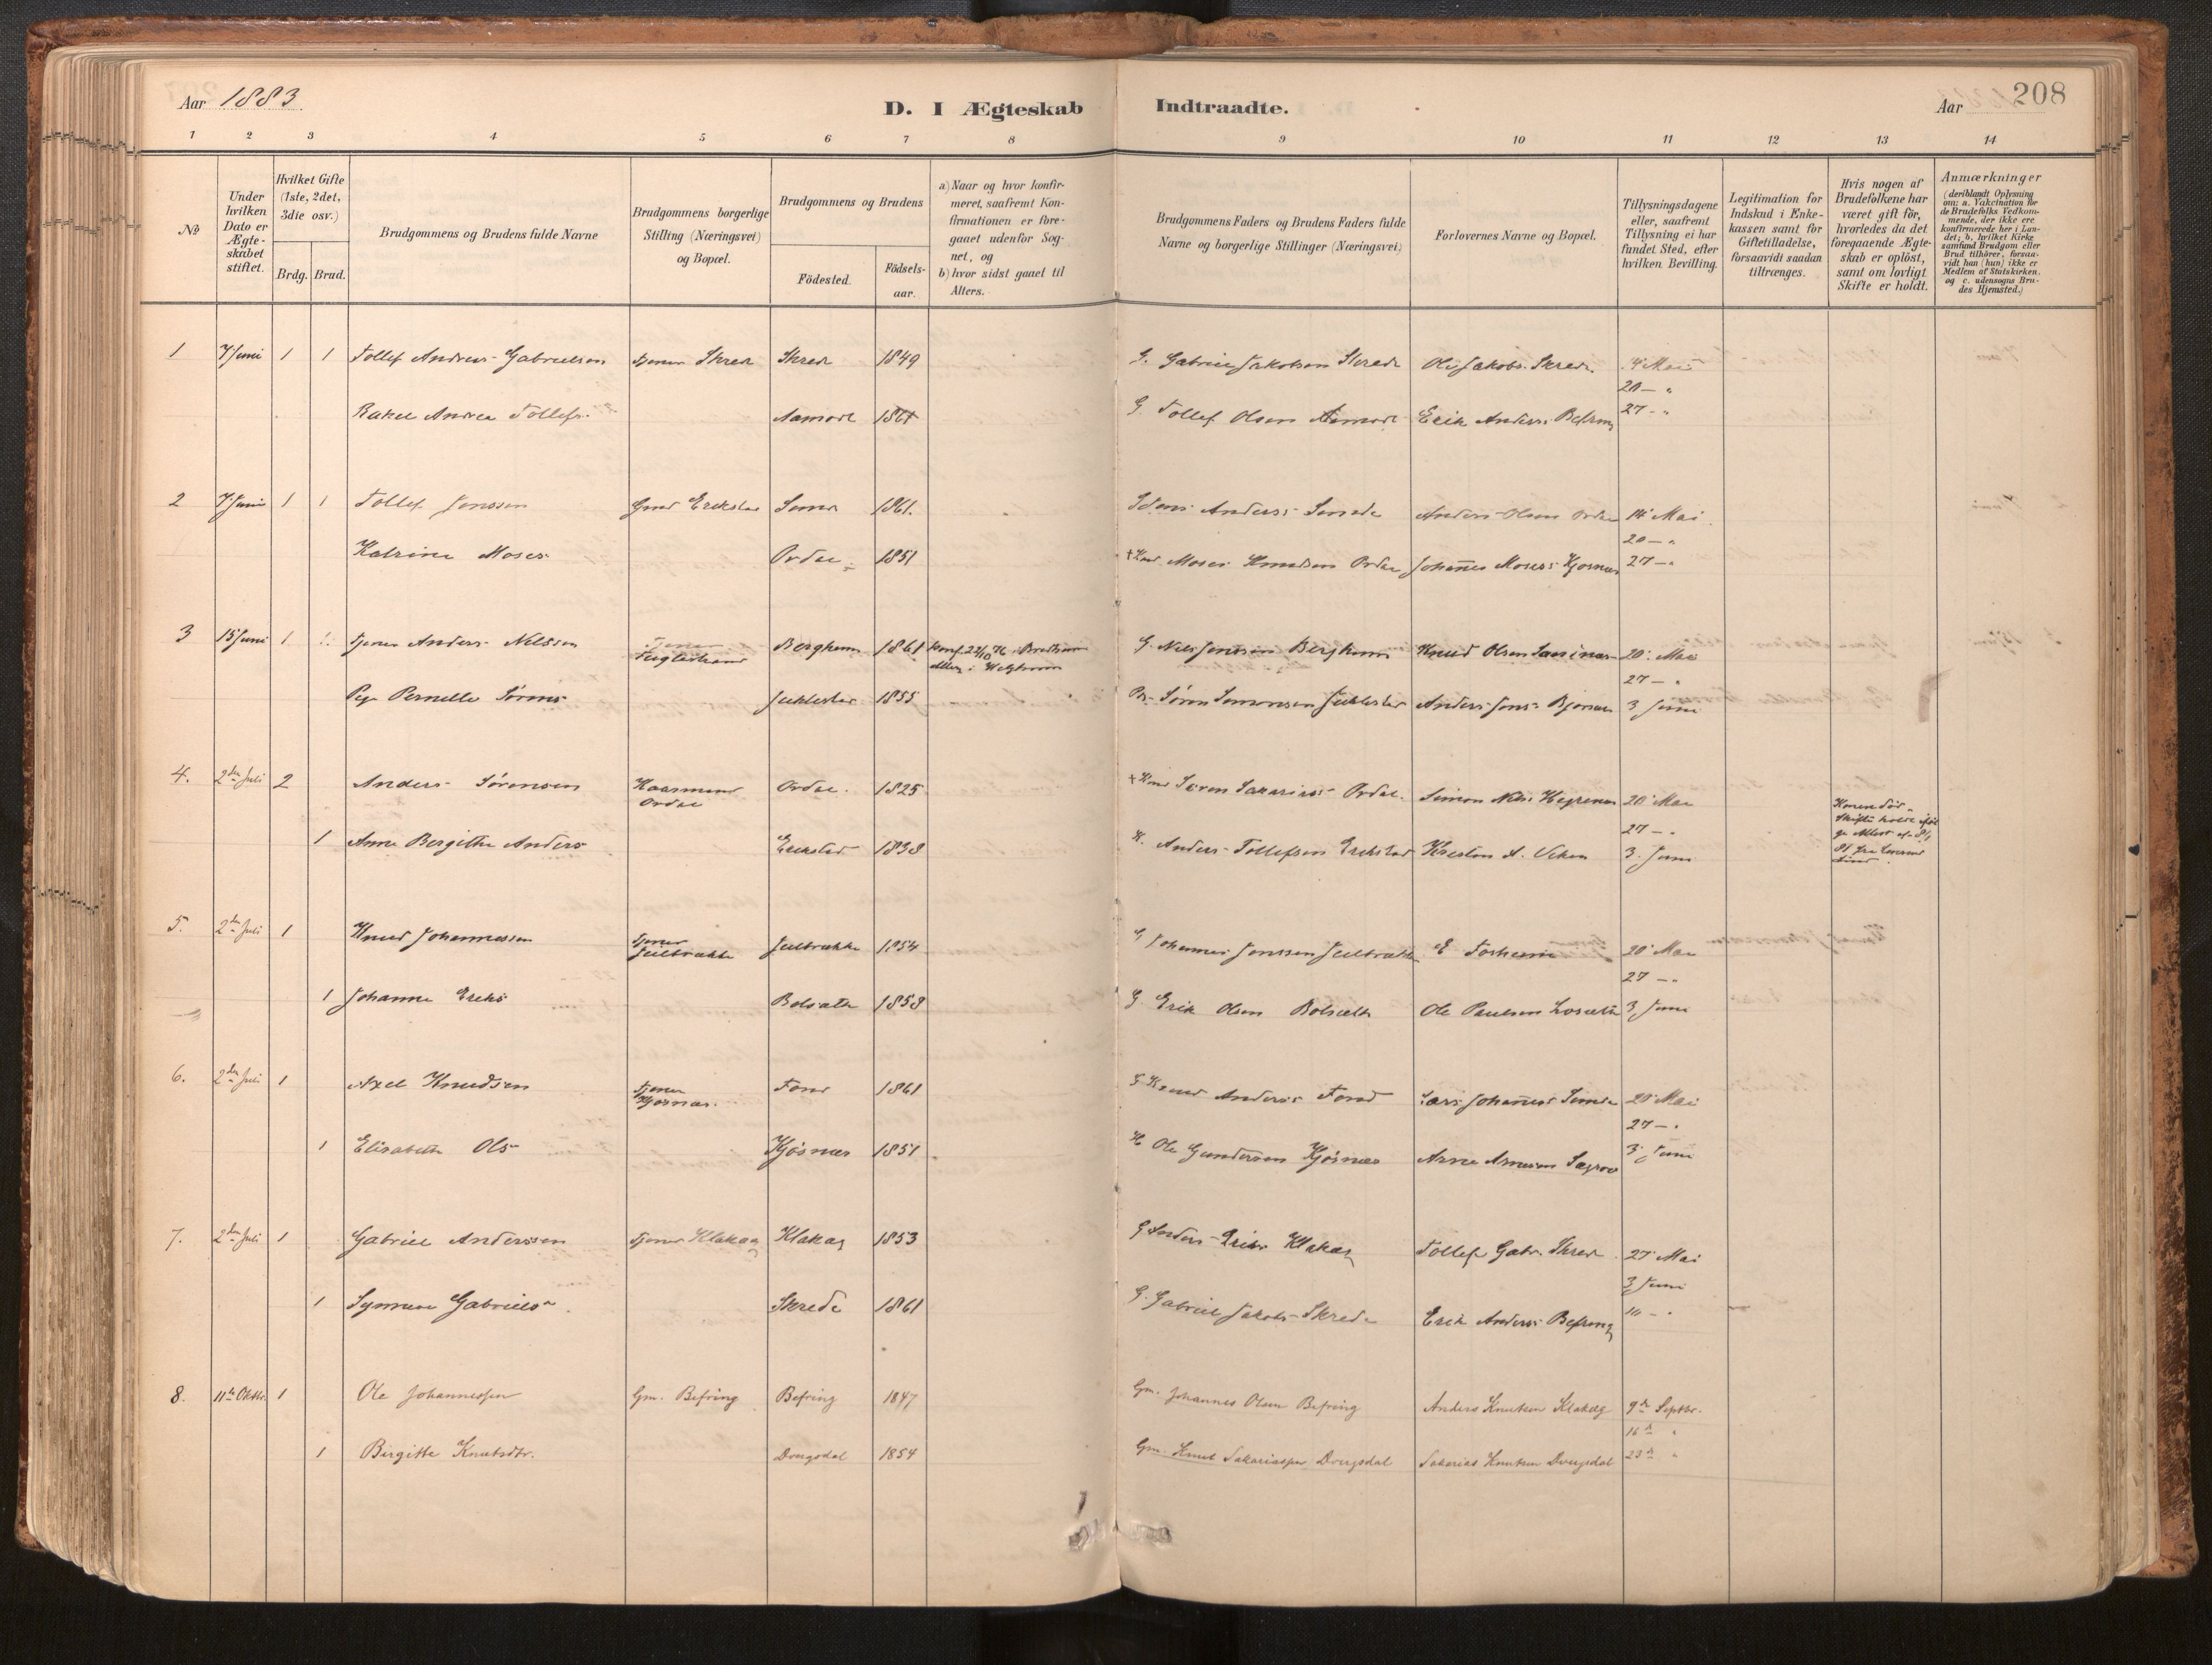 Aar 1883.
D. I Ægteskab Indtraadte.
Aar 208
1 2 3 4 5 6 7 8 9 10 11 12 13 14
No
Under hvilken Dato er Ægteskabet stiftet.
Hvilket Gifte (1ste, 2det, 3die osv.)
Brdg. Brud.
Brudgommens og Brudens fulde Navne
Brudgommens borgerlige Stilling (Næringsvei) og Bopæl.
Brudgommens og Brudens
Födested. Födselsaar.
a) Naar og hvor konfirmeret, saafremt Konfirmationen er foregaaet udenfor Sognet, og
b) hvor sidst gaaet til Alters.
Brudgommens Faders og Brudens Faders fulde Navne og borgerlige Stillinger (Næringsvei)
Forlovernes Navne og Bopæl.
Tillysningsdagene eller, saafremt Tillysning ei har fundet Sted, efter hvilken Bevilling.
Legitimation for Indskud i Enkekassen samt for Giftetilladelse, forsaavidt saadan tiltrænges.
Hvis nogen af Brudefolkene har været gift för, hvorledes da det foregaaende Ægteskab er oplöst, samt om lovligt Skifte er holdt.
Anmærkninger
(deriblandt Oplysning om: a. Vakcination for de Brudefolks Vedkommende, der ikke ere konfirmerede her i Landet; b. hvilket Kirkesamfund Brudgom eller Brud tilhörer, forsaavidt han (hun) ikke er Medlem af Statskirken. og c. udensogns Brudes Hjemsted.)
1 7 Juni 1 1 Tollef Andreas Gabrielsen Tjener Skrede Skrede 1849 G. Gabriel Jakobsen Skrede Ole Jakobs. Skrede 14 Mai
20 — "
Rakel Andrea Tollefs Aamodt 1861 G. Tollef Olsen Aamodt Erik Anders. Befring 27 — "
2 7 Juni 1 1 Tollef Jonssen Gmd Erikstad 1861. Anders Olsen Ordal 14 Mai
20 — "
Katrine Moses Ordal 1851 Moses Knudsen Ordal Johannes Moses. Kjøsnæs 27 — "
3 15 Juni 1 1 Tjener Anders Nilssen Tjener Berghem 1861 Konf. 22/10 76 G. Nils Jonssen Berghem Knud Olsen 20 Mai
27 — "
Pernille Sørens 1855 Søren Anders Jons. 3 Juni
4. 2den Juli 2 Anders Sørensen Kaarmand Ordal Ordal 1825 Søren Sakarias Ordal Simon Nils. 20 Mai
27 — "
Konen død
1 Anne Bergithe Anders Erikstad 1838 K. Anders Tollefsen Erikstad 3. Juni
5. 2den Juli 1 Knud Johannessen Tjener 1854 G Johannes Jonssen 20 Mai
27 — "
1 Johanne Eriks Bolsæth 1858 G Erik Olsen Bolsæth Ole Paulsen 3 Juni
6. 2den Juli 1 Axel Knudsen Tjener Kjøsnæs Fond 1861 G Knud Anders. Fond Lars Johannes. 20 Mai
27 — "
1 Elisabeth Ols Kjøsnæs 1851 K Ole Gundersen Kjøsnæs Arne Arnesen 3 Juni
7. 2den Juli 1 Gabriel Anderssen Tjener Klakag Klakag 1853 G Anders Eriks. Klakag Tollef Gabr. Skrede 27 Mai
3 Juni
1 Synneve Gabriels Skrede 1861 G. Gabriel Jakobs Skrede Erik Anders. Befring 10 — "
8. 11te Oktbr. 1 Ole Johannessen Gm. Befring Befring 1847 Gm. Johannes Olsen Befring Anders Knutsen Klakeg 9de Septbr.
16de "
1 Birgitte Knutsdtr. Dvergsdal 1854 Gm. Knut Sakariassen Dvergsdal Sakarias Knutsen Dvergsdal 23de "